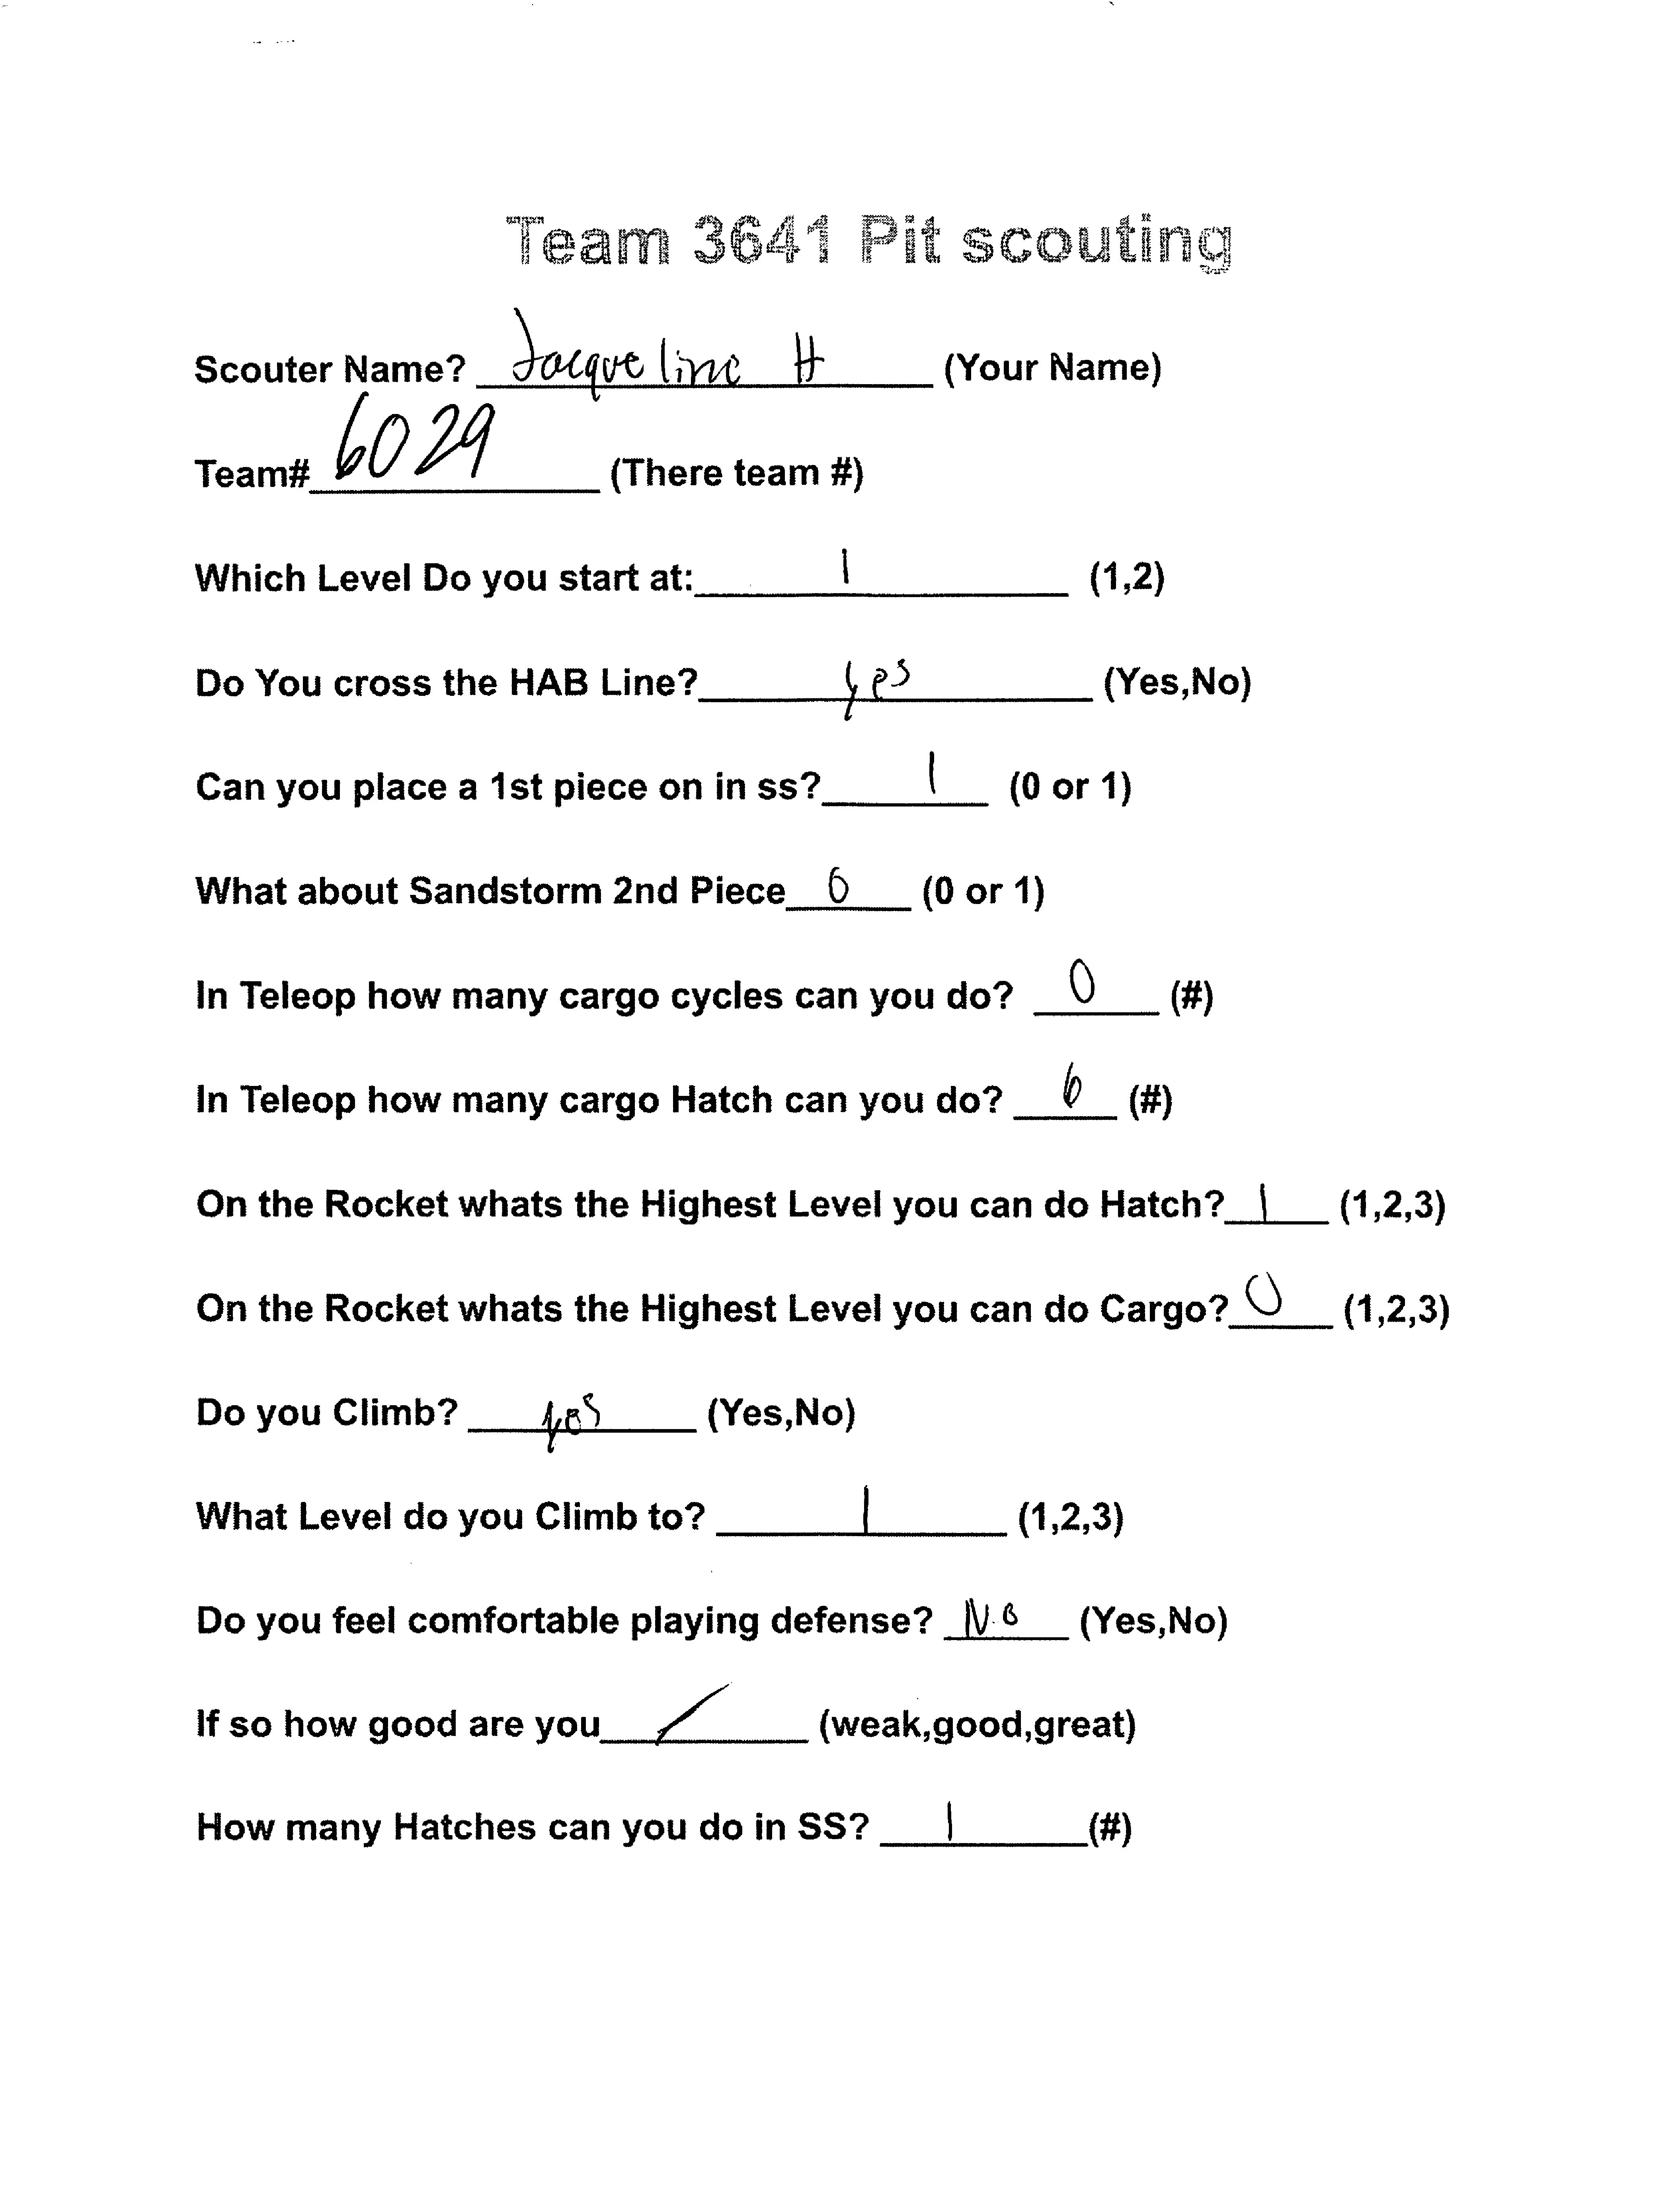 Team 3641 Pit scouting
Scouter Name? Jacqueline H (Your Name)
Team# 6029 (There team #)
Which Level Do you start at: 1 (1,2)
Do You cross the HAB Line? yes (Yes,No)
Can you place a 1st piece on in ss? 1 (0 or 1)
What about Sandstorm 2nd Piece 0 (0 or 1)
In Teleop how many cargo cycles can you do? 0 (#)
In Teleop how many cargo Hatch can you do? 6 (#)
On the Rocket whats the Highest Level you can do Hatch? 1 (1,2,3)
On the Rocket whats the Highest Level you can do Cargo? 0 (1,2,3)
Do you Climb? yes (Yes,No)
What Level do you Climb to? 1 (1,2,3)
Do you feel comfortable playing defense? No (Yes,No)
If so how good are you / (weak,good,great)
How many Hatches can you do in SS? 1 (#)